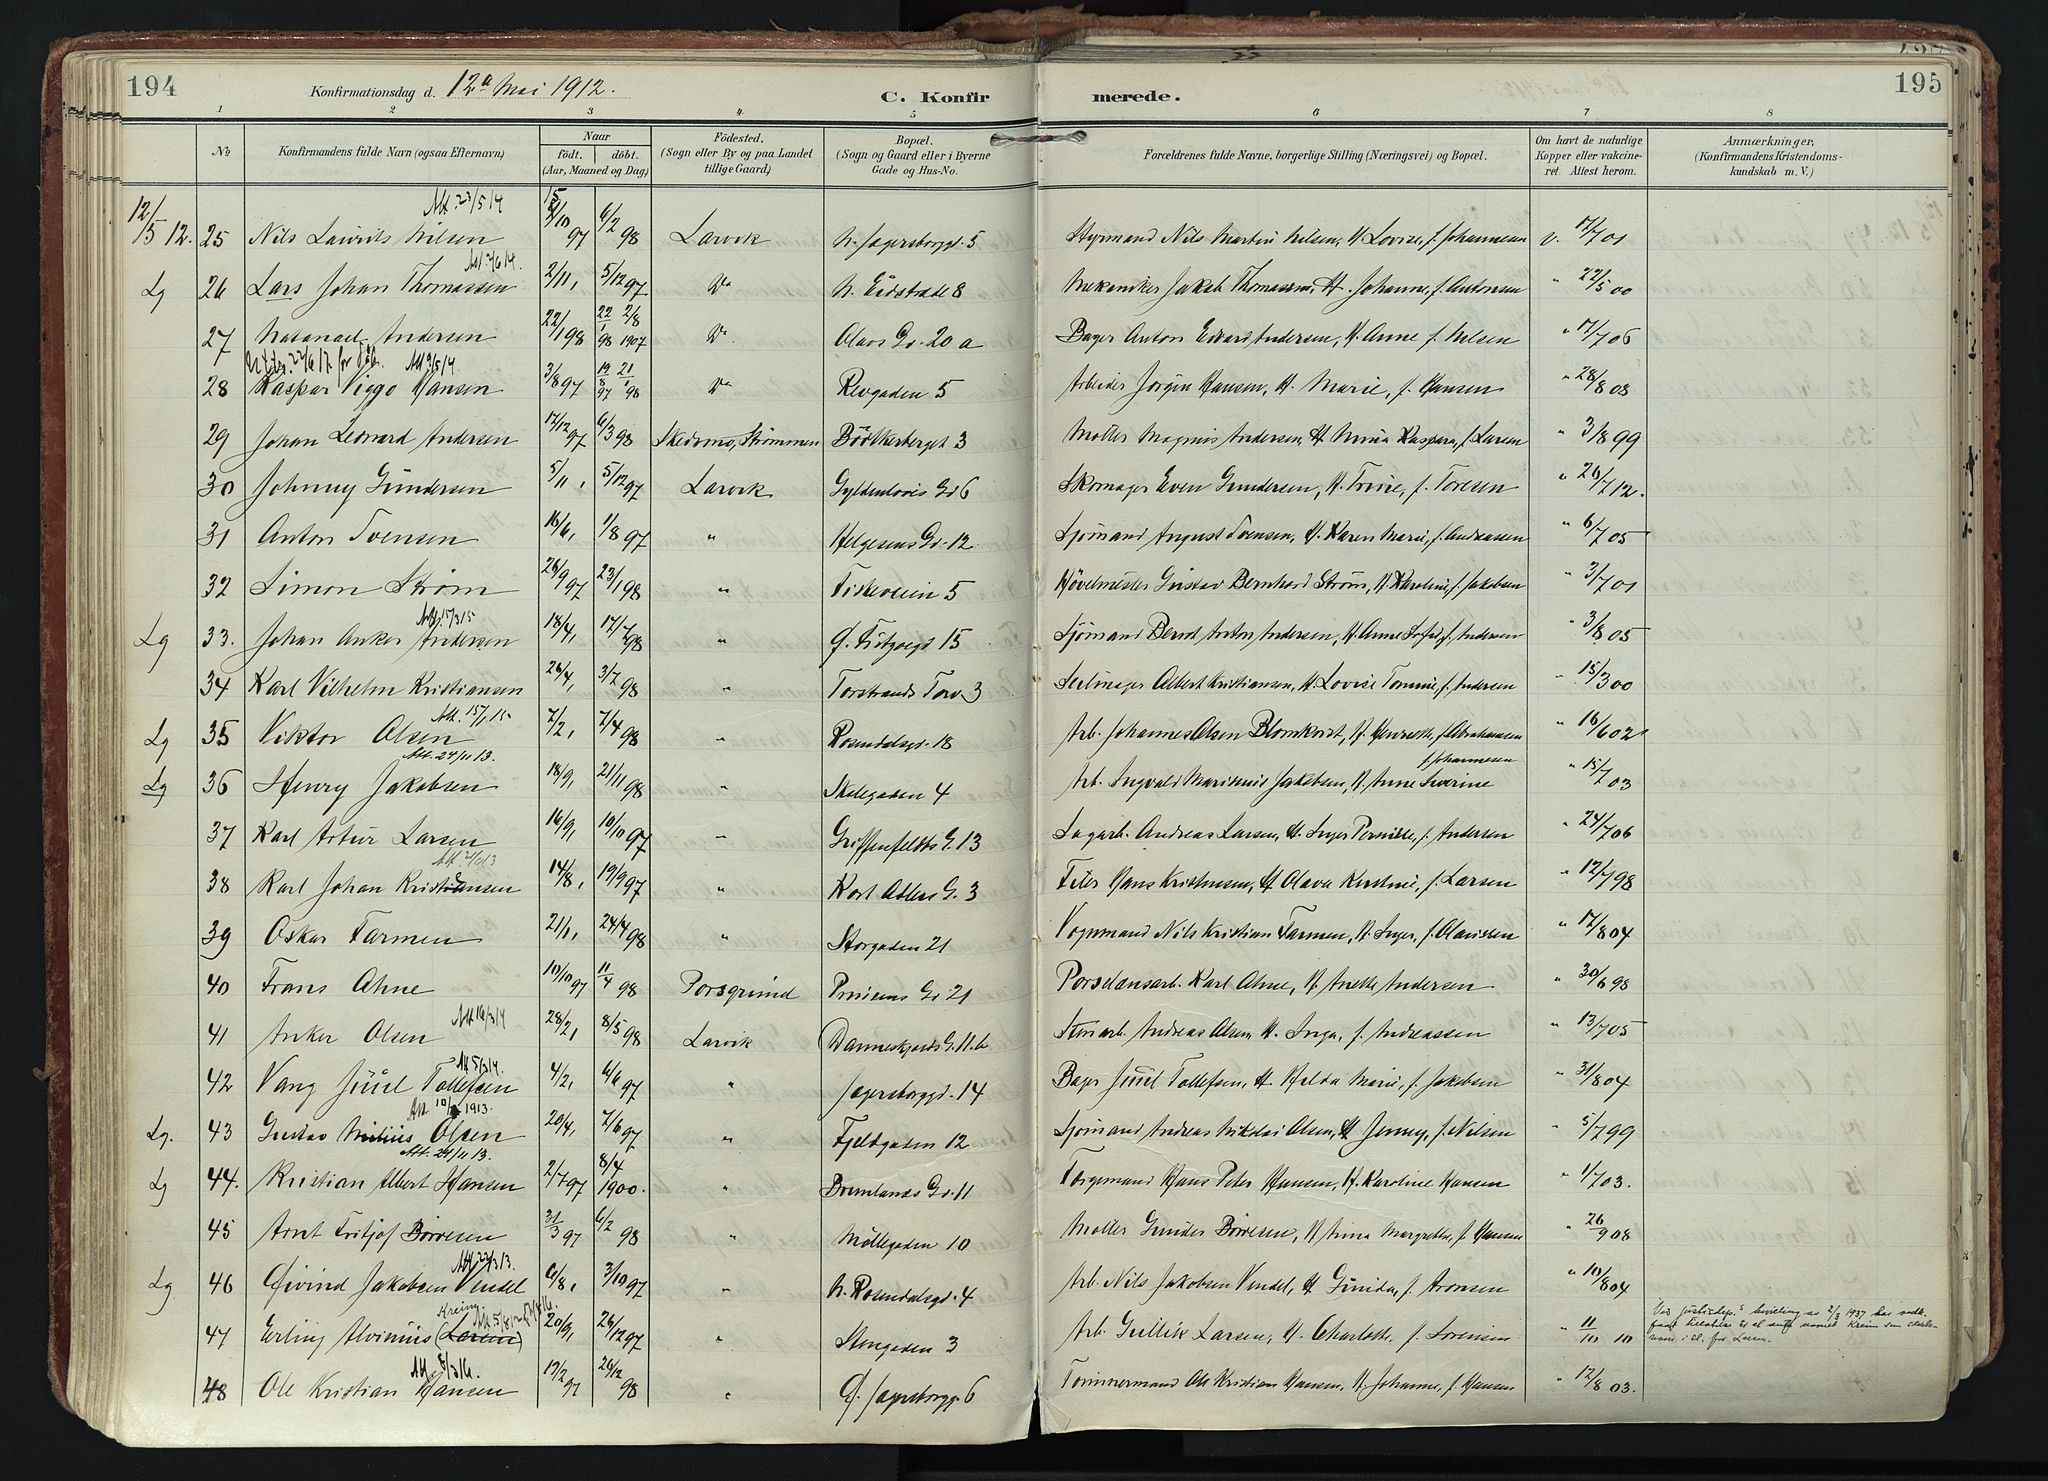 194
Konfirmationsdag d. 12a Mai 1912.
C. Konfir
merede.
195
1 2 3 4 5 6 7 8
No
Konfirmandens fulde Navn (ogsaa Efternavn)
Naar
født. døbt.
(Aar, Maaned og Dag)
Födested.
(Sogn eller By og paa Landet
tillige Gaard)
Bopæl.
(Sogn og Gaard eller i Byerne
Gade og Hus-No.
Forældrenes fulde Navne, borgerlige Stilling (Næringsvei) og Bopæl.
Om havt de naturlige
Kopper eller vakcine-
ret. Attest herom.
Anmærkninger.
(Konfirmandens Kristendoms-
kundskab m. V.)
Att. 23/5 14
12/5 12. 25 Nils Laurits Nilsen 97 6/2 98 Larvik N. Jegersborggt. 5 Styrmand Nils Martin Nilsen, H. Lovise, f. Johannesen v. 17/7 01
Lg 26 Lars Johan Thomassen 2/11, 5/12 97 Do N. Eidstrade 8 Mekaniker Jakob Thomassen, H. Johanne, f. Antonsen " 22/5 00
27 Natanael Andersen 22/1 98 22/1 98 2/8 1907 Do. Olavs Gd. 20 a Bager Anton Edvard Andersen, H. Anne f. Nilsen " 17/7 06
Att. 9/5 14
28 Kaspar Viggo Hansen 3/8 97 19/8 97 21/1 98 Do Revgaden 5 Arbeider Jørgen Hansen, H. Marie, f. Hansen " 28/8 03
29 Johan Leonard Andersen 17/12 97 6/3 98 Skedsmo, Strømmen Bøkkerberget 3 Møller Magnus Andersen, H. Mina Kaspara, f. Larsen " 3/8 99
30 Johnny Gundersen 5/11, 5/12 97 Larvik Gyldenløves Gd 6 Skomager Even Gundersen, H. Trine, f. Toresen " 26/7 12.
31 Anton Svensen 16/6, 1/8 97 " Helgesens Gd. 12 Sjømand August Svensen, H. Karen Marie, f. Andreassen " 6/7 05
32 Simon Strøm 26/9 97 23/1 98 " Fiskeveien 5 Høvelmester Gustav Bernhard Strøm, H. Karoline, f. Jakobsen " 3/7 01
Att. 15/3 15
Lg 33. Johan Anker Andersen 18/4, 17/7 98 " Sjømand Bernt Anton Andersen, H. Anne f. Andersen " 3/8 05
34 Karl Vilhelm Kristiansen 26/4, 3/7 98 " Torstrands Torv 3 Seilmager Albert Kristiansen, H. Lovise Tomine, f. Andersen " 15/3 00
Att. 15/1 15
Lg 35 Viktor Olsen 7/2, 7/4 98 " Rosendalsgd. 18 Arb. Johannes Olsen Blomkvist, H. Henriette, f. Abrahamsen " 16/6 02
Att. 24/11 13.
f. Johannesen
Lg 36 Henry Jakobsen 18/9, 21/11 98 " Skolegaden 4 Arb. Ingvald Marinius Jakobsen, H. Anne Severine " 15/7 03
37 Karl Artur Larsen 16/9, 10/10 97 " Griffenfeldts G. 13 Sagarb. Andreas Larsen, H. Inger Pernille, f. Andersen " 24/7 06
38 Karl Johan Kristiansen 14/8, 19/9 97 " Kort Adlers G. 3 Feier Hans Kristensen, H. Olava Kirstine, f. Larsen " 12/7 98
39 Oskar Farmen 21/1, 24/4 98 " Storgaden 21 Vognmand Nils Kristian Farmen, H. Inger, f. Olaussen " 17/8 04
40 Frans Ahne 10/10 97 11/4 98 Porsgrund Prinsens Gd. 21 Porselænsarb. Karl Ahne, H. Anette Andersen " 30/6 98
Att 16/3 14
41 Anker Olsen 28/2, 8/5 98 Larvik Danneskjolds G. 11. b. Stenarb. Andreas Olsen, H. Inga, f. Andreassen " 13/7 05
Att 5/3 14.
42 Vang Juul Tollefsen 4/2, 6/6 97 " Jegersborggd. 14 Bager Juul Tollefsen, H. Hilda Marie, f. Jakobsen " 31/8 04
Lg. 43 Gustav Milius Olsen 20/4, 7/6 97 " Fjeldgaden 12 Sjømand Andreas Nikolai Olsen, H. Jenny, f. Nilsen " 5/7 99
Att. 24/11 13.
Lg 44. Kristian Albert Hansen 2/7 97 8/4 1900. " Bremlands Gd. 11 Færgemand Hans Peter Hansen, H. Karoline Hansen " 1/7 03.
45 Arnt Fritjof Børresen 31/3 97 6/2 98 " Møllegaden 10 Møller Gunder Børresen, H. Anna Margrethe, f. Hansen " 26/9 08
Lg 46 Øivind Jakobsen Vendel 6/8, 3/10 97 " N. Rosendalsgd. 4 Arb. Nils Jakobsen Vendel, H. Gunida, f. Aronsen " 10/8 04
Kreim.
47 Erling Alvinius (Larsen) 20/9, 26/12 97 " Stengaden 3 Arb. Gullik Larsen, H. Charlotte, f. Sørensen " 11/10 10
Ved Justisdep.s bevilling av 2/3 1937 har vedk.
Att 8/3 16.
48 Ole Kristian Hansen 17/2 97 26/12 98 " Ø. Jegersborgg. 6 Tømmermand Ole Kristian Hansen, H. Johanne, f. Hansen " 12/8 03.